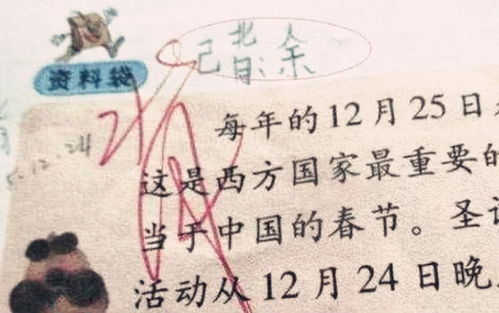 已背:余
资料袋
12.24
每年的12月25日
这是西方国家最重要的
当于中国的春节。圣
活动从12月24日晚